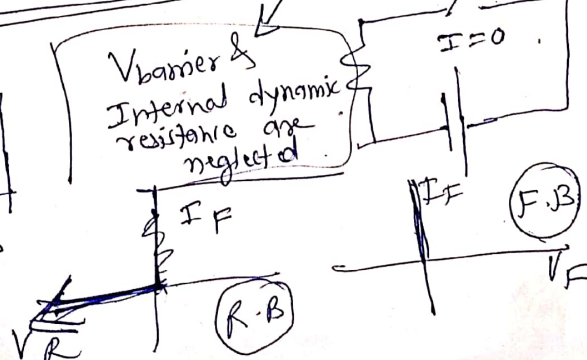 Vbarrier &
Internal dynamic
resistance are
neglected.
I=0
IF
VR
R.B
IF
F.B
VF